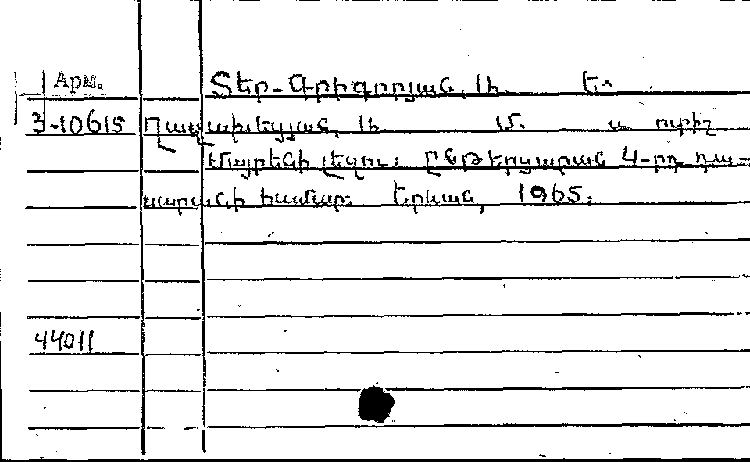 Арм.
Տեր-Գրիգորյան, Ա. Ե.
3-10615 Ղ Ա. Մ. և ուրիշ
Մայրենի լեզու: Ընթերցարան 4-րդ դա-
սարանի համար: Երևան, 1965:
44011